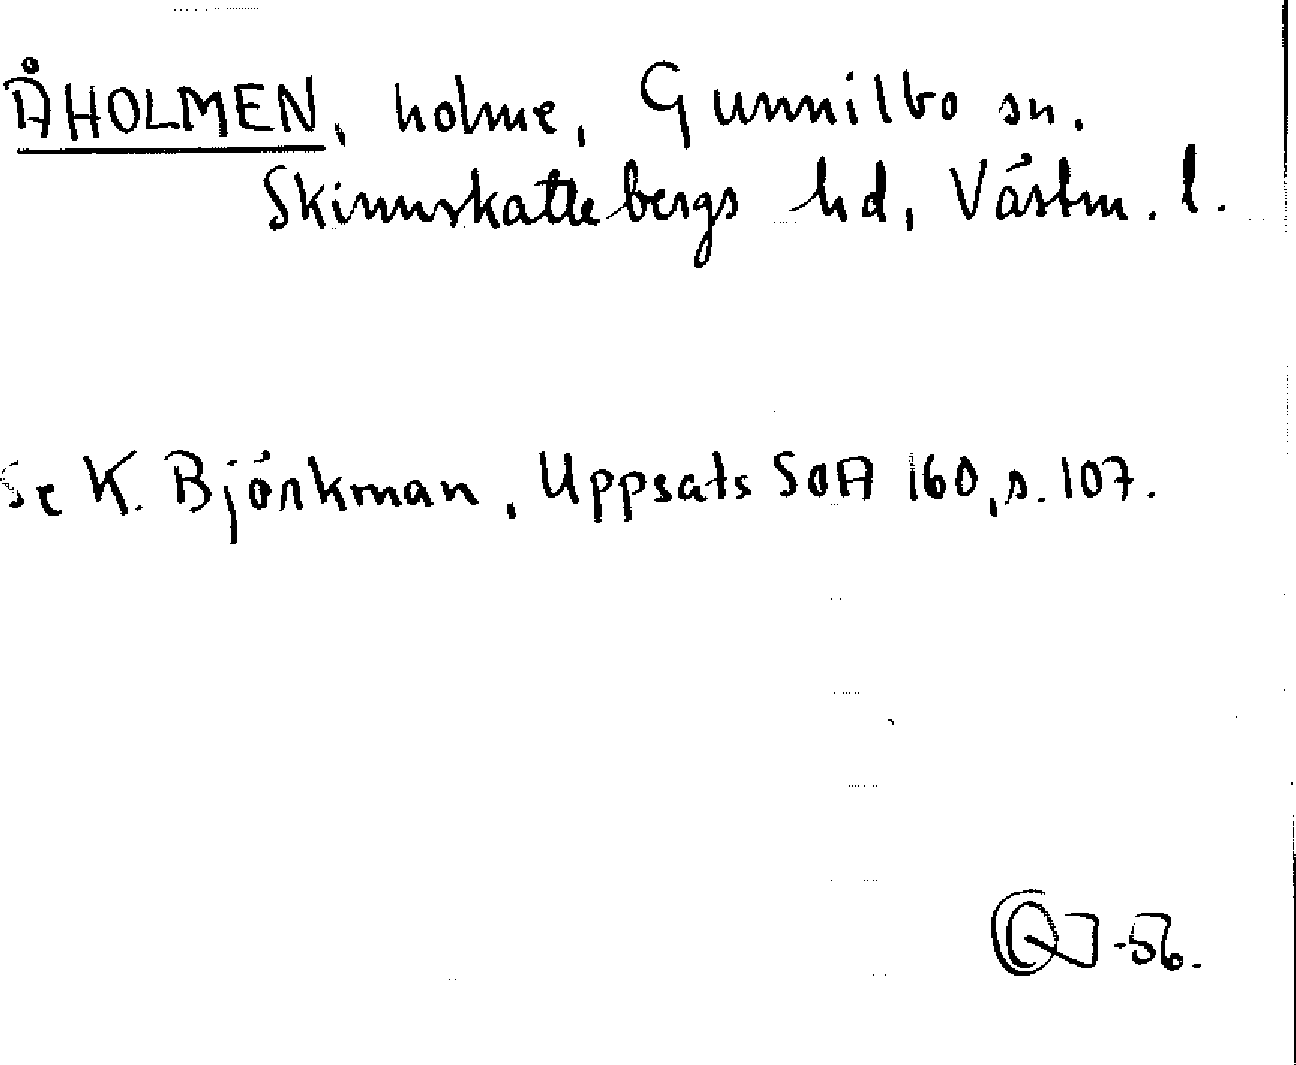 ÅHOLMEN, holme, Gunnilbo sn.
Skinnskattebergs hd, Västm. l.
Se K. Björkman, Uppsats SOA 160, s. 107.
-56.